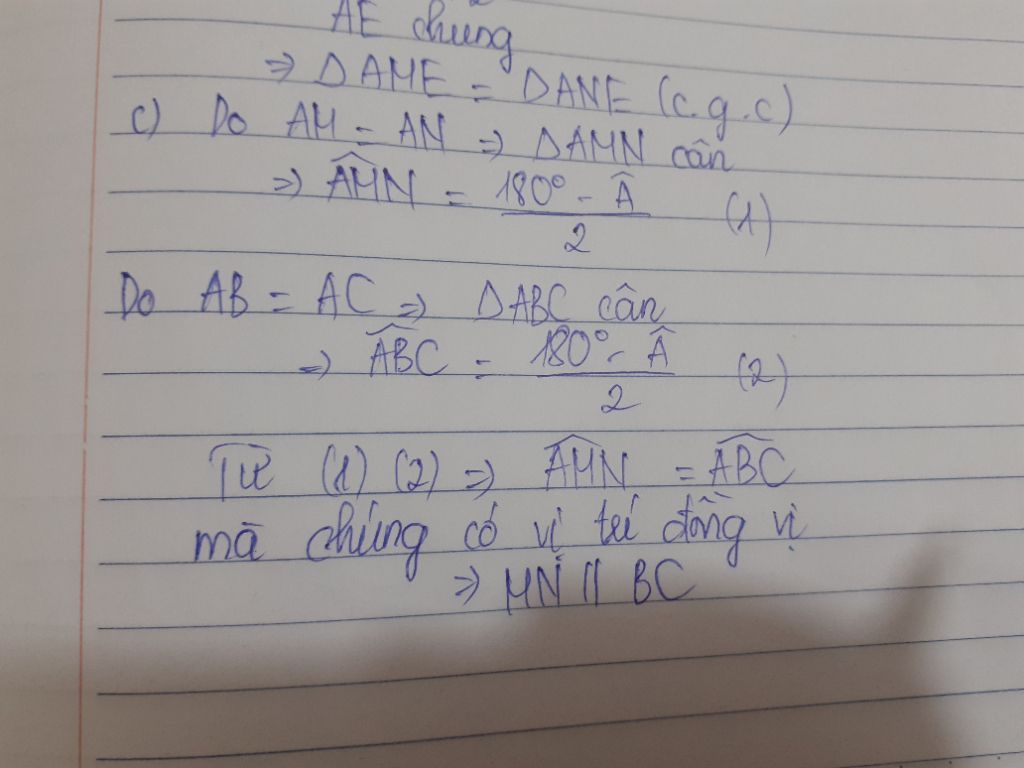 AE chung
=> ΔAME = ΔANE (c.g.c)
c) Do AM = AN => ΔAMN cân
=> \widehat{AMN} = \frac{180° - \hat{A}}{2} (1)
Do AB = AC => ΔABC cân
=> \widehat{ABC} = \frac{180° - \hat{A}}{2} (2)
Từ (1) (2) => \widehat{AMN} = \widehat{ABC}
mà chúng có vị trí đồng vị
=> MN // BC